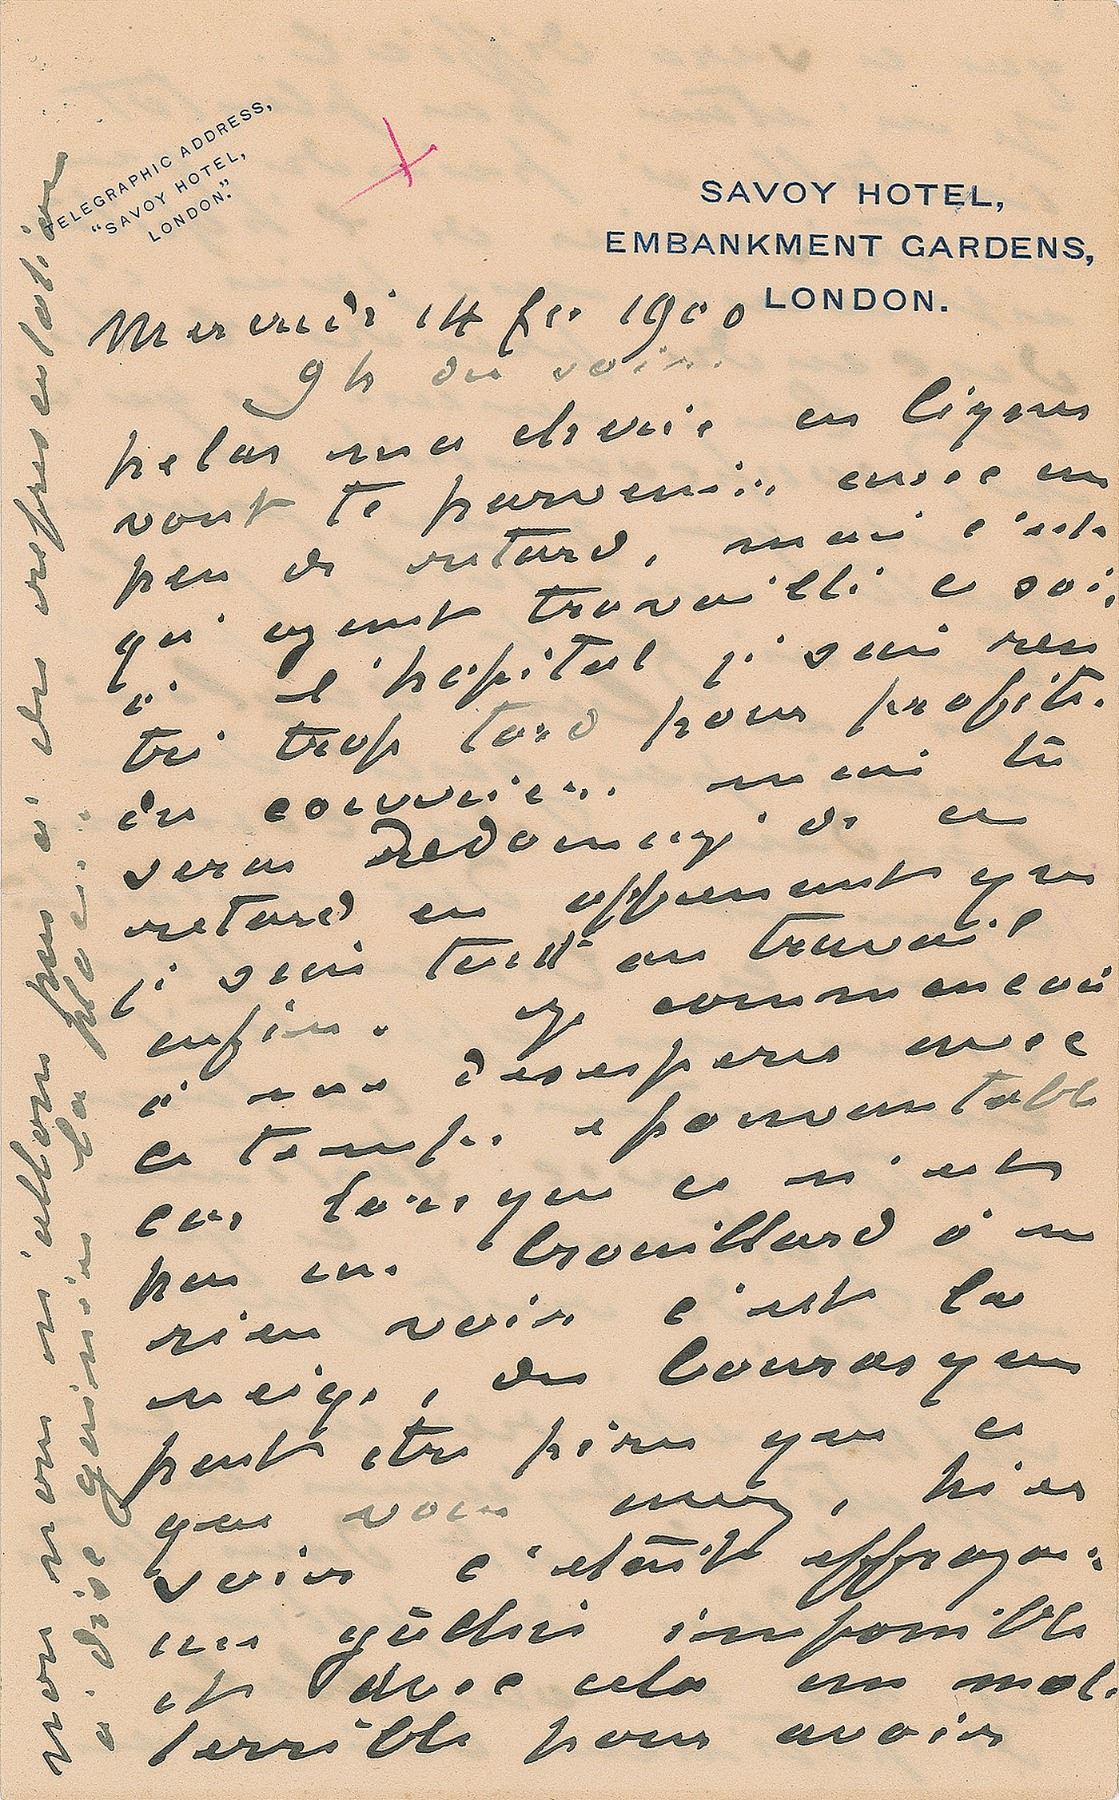 TELEGRAPHIC ADDRESS,
"SAVOY HOTEL,
LONDON."
SAVOY HOTEL,
EMBANKMENT GARDENS,
LONDON.
Mercredi 14 fev 1900
9h du soir.
helas ma cherie ces lignes
vont te parvenir avec un
peu de retard, mais c'est
qu'ayant travaillé ce soir
à l'hopital je suis ren
tré trop tard pour profiter
du courrier. mais tu
seras dedomagé de ce
retard en apprenant que
je suis tout au travail
enfin. Je commencais
à me desesperer avec
ce temps epouvantable
car lorsque ce n'est
pas un brouillard à ne
rien voir c'est la
neige, des bourasques
peut etre pires que ce
que vous avez, hier
soir c'était effrayant
un gâchis impossible
et avec cela un mal
terrible pour avoir
non nous n'allons pas à de representation
a dix guinées la place.